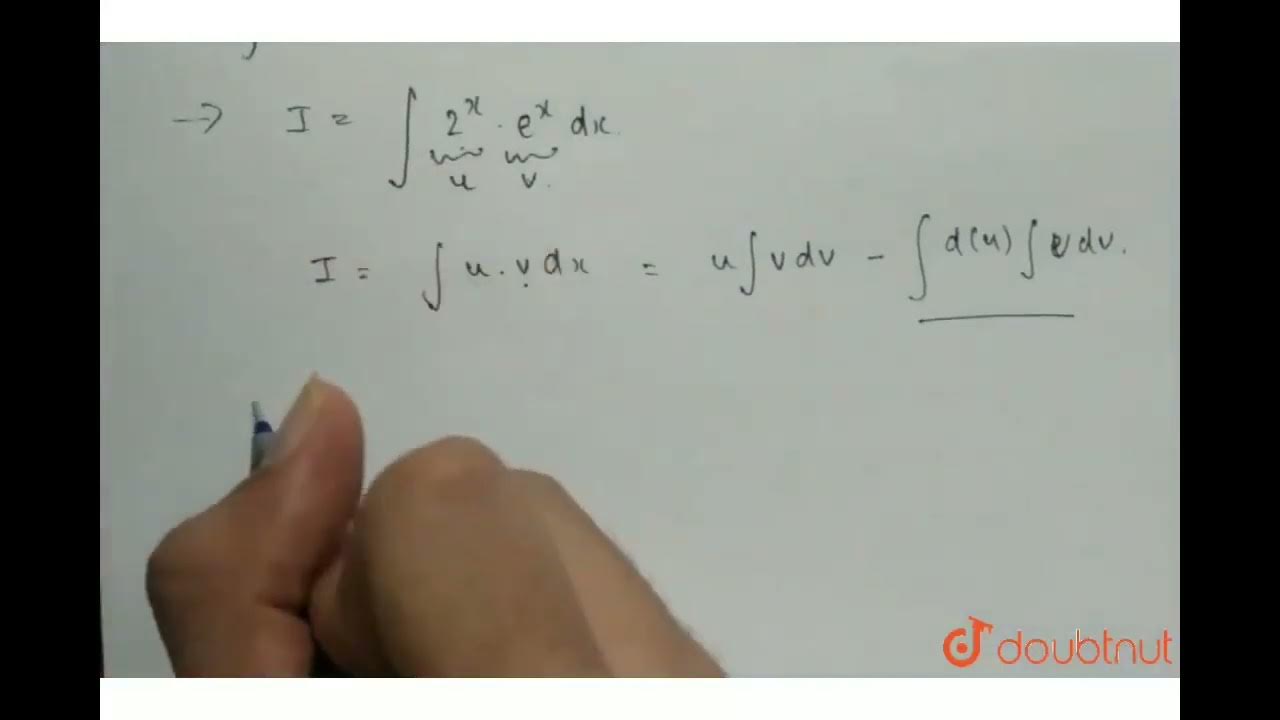 → I = ∫ 2^x . e^x dx.
u v.
I = ∫ u . v dx = u ∫ v dv - ∫ d(u) ∫ v dv.
doubtnut